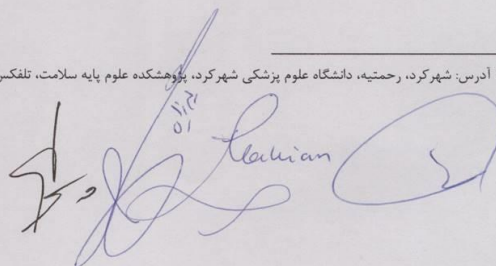 آدرس: شهرکرد، رحمتیه، دانشگاه علوم پزشکی شهرکرد، پژوهشکده علوم پایه سلامت، تلفکس